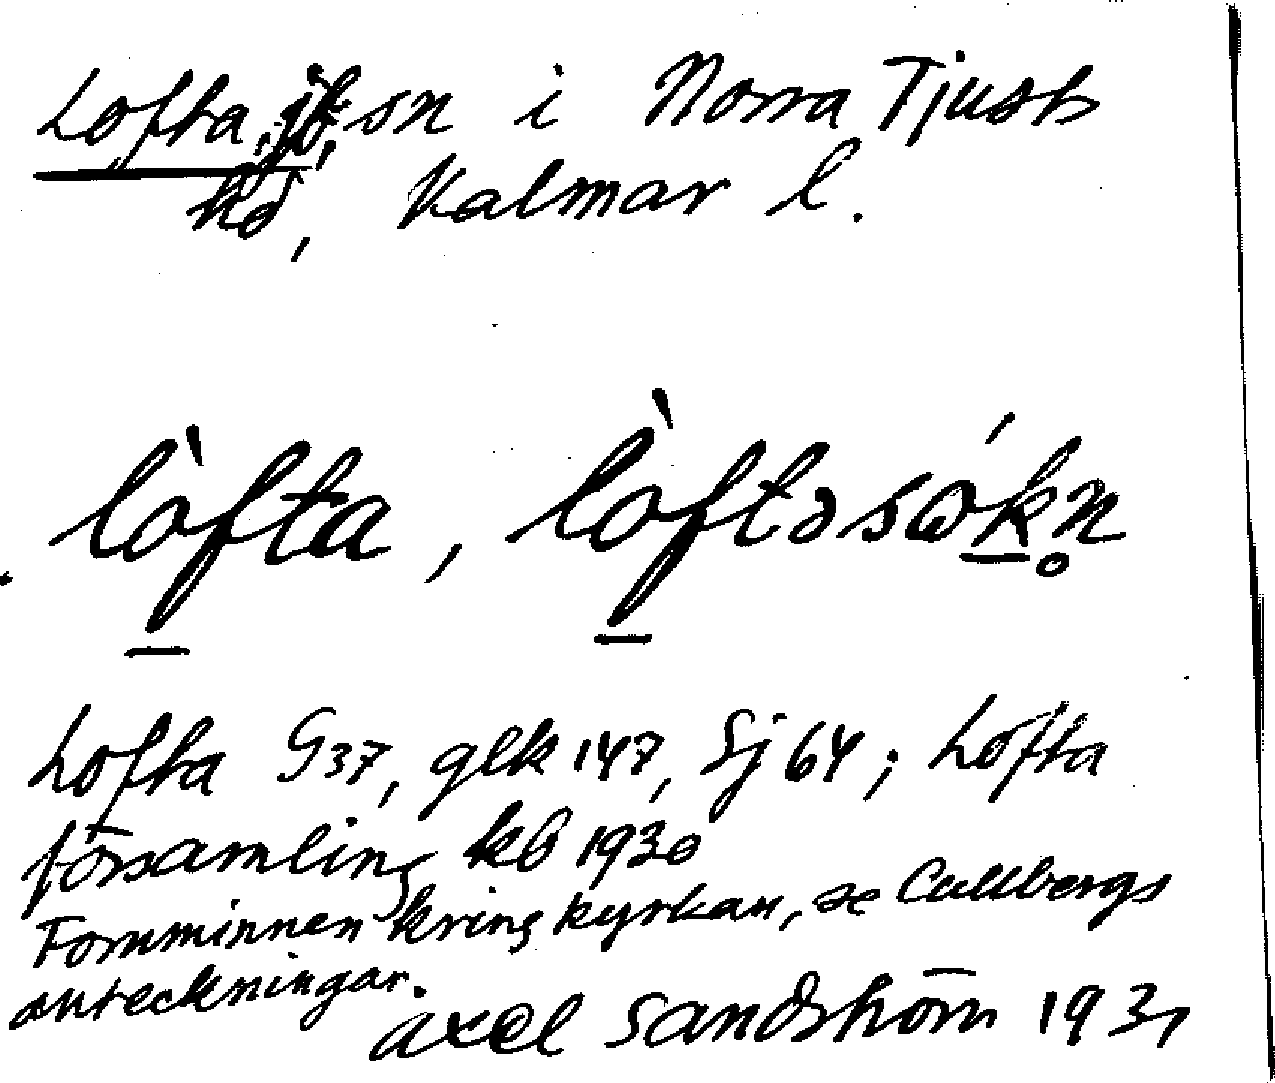 Lofta, sn i Norra Tjusts
hd, Kalmar l.
lòfta, lòftəsωḱn̥
Lofta G37, glk 147, Sj 64; Lofta
församling kb 1930
Fornminnen kring kyrkan, se Cullbergs
anteckningar.
Axel Sandström 1931